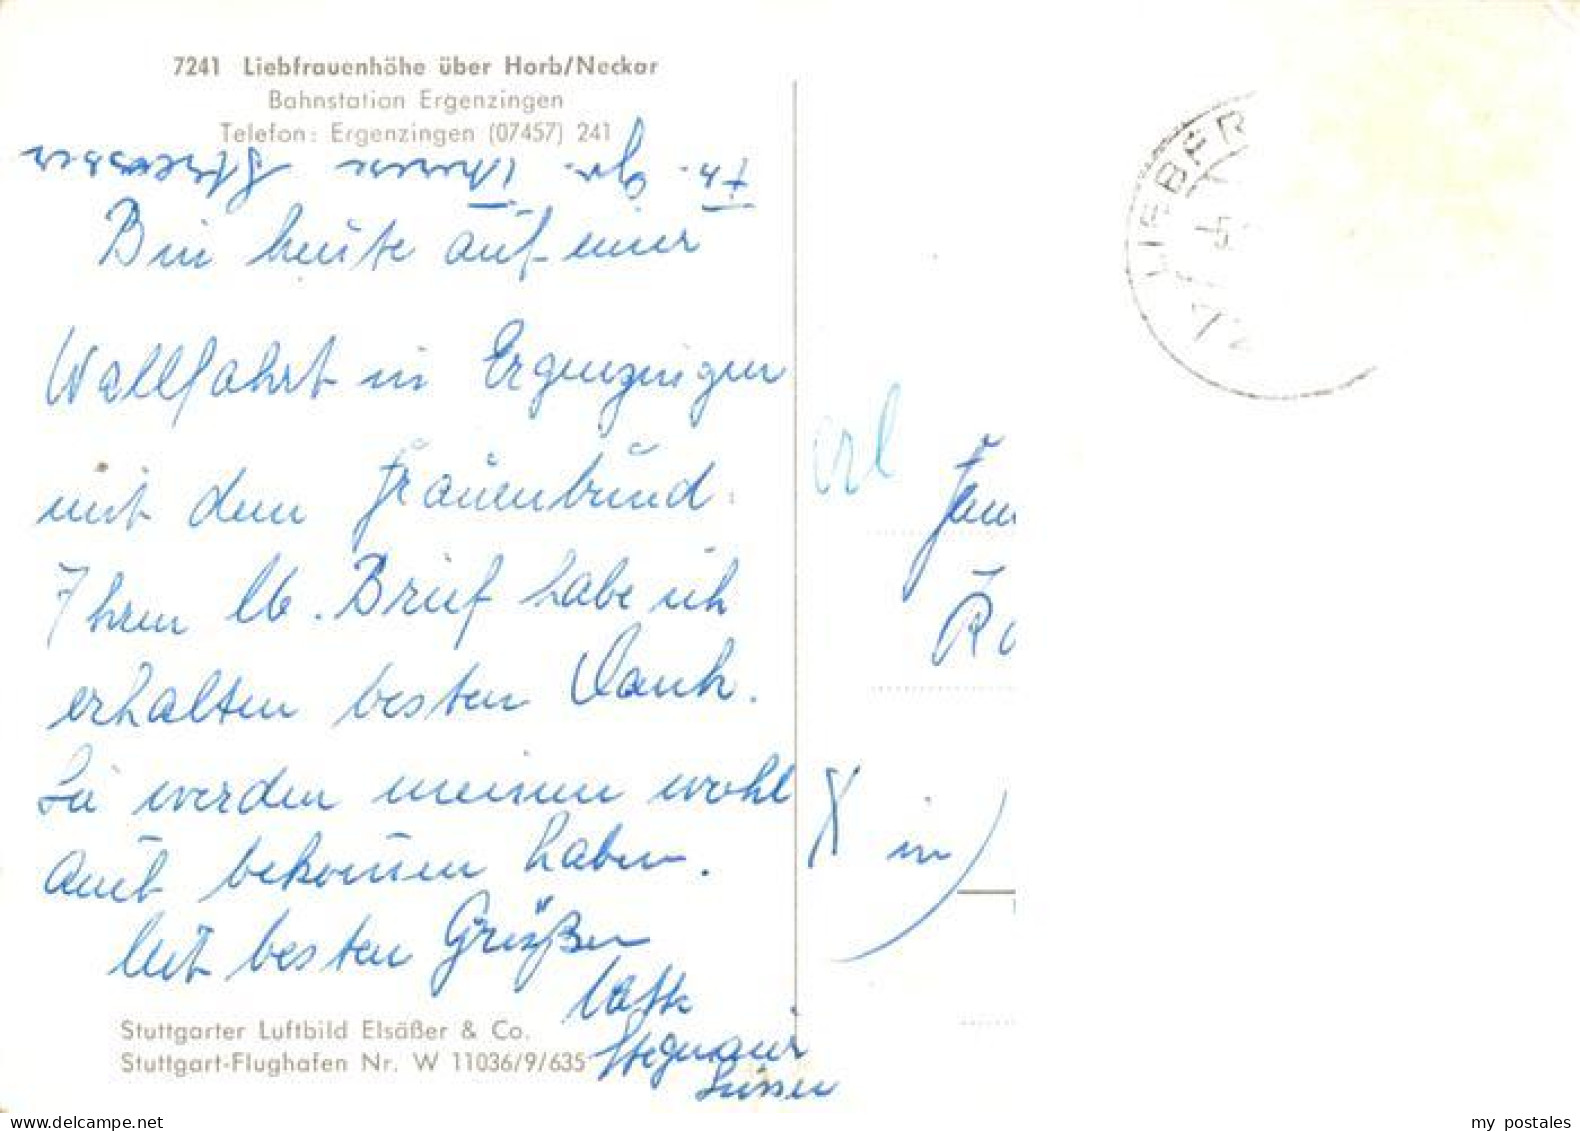 7241 Liebfrauenhöhe über Horb/Neckar
Bahnstation Ergenzingen
Telefon: Ergenzingen (07457) 241
Bin heute auf einer
Wallfahrt in Ergenzingen
mit dem Frauenbund.
Ihren lb. Brief habe ich
erhalten besten Dank.
Sie werden meinen wohl
auch bekommen haben.
Mit besten Grüßen
Stegmair
Stuttgarter Luftbild Elsäßer & Co.
Stuttgart-Flughafen Nr. W 11036/9/635
LIEBFR
in
my postales